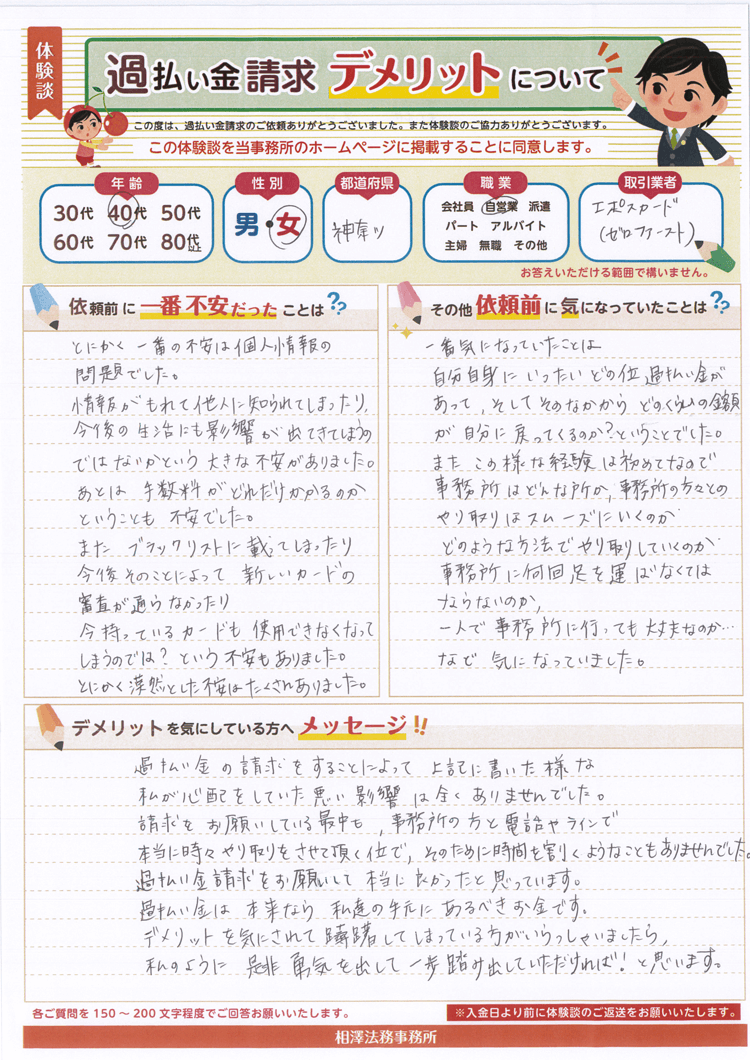 体験談
過払い金請求 デメリットについて
この度は、過払い金請求のご依頼ありがとうございました。また体験談のご協力ありがとうございます。
この体験談を当事務所のホームページに掲載することに同意します。
年齢
30代 40代 50代
60代 70代 80代以上
性別
男・女
都道府県
神奈川
職業
会社員 自営業 派遣
パート アルバイト
主婦 無職 その他
取引業者
エポスカード
(ゼロファースト)
お答えいただける範囲で構いません。
依頼前に一番不安だったことは??
とにかく 一番の不安は個人情報の
問題でした。
情報がもれて他人に知られてしまったり、
今後の生活にも影響が出てきてしまうの
ではないかという 大きな不安がありました。
あとは 手数料がどれだけかかるのか
ということも 不安でした。
また ブラックリストに載ってしまったり
今後そのことによって 新しいカードの
審査が通らなかったり
今持っているカードも 使用できなくなって
しまうのでは?という不安もありました。
とにかく漠然とした不安はたくさんありました。
その他依頼前に気になっていたことは??
一番気になっていたことは
自分自身に いったい どの位 過払い金が
あって、そしてそのなかから どのくらいの金額
が 自分に 戻ってくるのか?ということでした。
また この様な経験は初めてなので
事務所はどんな所か、事務所の方々との
やり取りはスムーズにいくのか
どのような方法でやり取りしていくのか
事務所に何回足を運ばなくては
ならないのか、
一人で事務所に行っても大丈夫なのか…
など 気になっていました。
デメリットを気にしている方へメッセージ!!
過払い金の請求をすることによって 上記に書いた様な
私が心配をしていた悪い影響は全くありませんでした。
請求をお願いしている最中も、事務所の方と電話やラインで
本当に時々やり取りをさせて頂く位で、そのために時間を割くようなこともありませんでした。
過払い金請求をお願いして 本当に良かったと思っています。
過払い金は 本来なら 私達の手元にあるべきお金です。
デメリットを気にされて躊躇してしまっている方がいらっしゃいましたら、
私のように 是非 勇気を出して一歩踏み出していただければ!と思います。
各ご質問を150〜200文字程度でご回答お願いいたします。
※入金日より前に体験談のご返送をお願いいたします。
相澤法務事務所